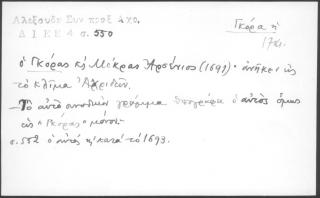 Αλεξούδη Συν προξ Αχρ.
Δ Ι Ε Ε 4 σ. 550
Γκόρα ἡ
ὁ Γκόρας κὴ Μόκρας Ἀρσένιος (1691). ἀνήκει εἰς
τὸ κλίμα Ἀχριδῶν.
Τὸ αὐτὸ συνοδικὸν γράμμα ὑπογράφει ὁ αὐτὸς ὅμως
ὡς "Γκόρας" μόνον.
σ. 552 ὁ αὐτὸς κὴ κατὰ τὸ 1693.